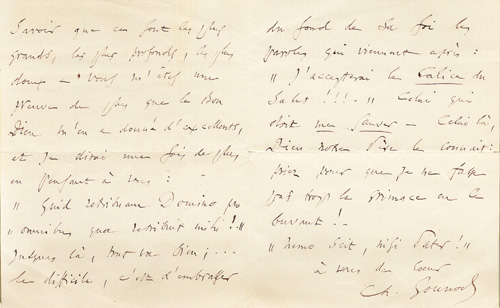 Savoir que ce sont les plus
grands, les plus profonds, les plus
doux — Vous m'êtes une
preuve de plus que le Bon
Dieu m'en a donné d'excellents,
et je dirai une fois de plus
en pensant à vous :
" Quid retribuam Domino pro
" omnibus quæ retribuit mihi ! "
Jusques là, tout va bien ; ...
le difficile, c'est d'embrasser
du fond de sa foi les
paroles qui viennent après :
" J'accepterai le Calice du
Salut !!! — " Celui qui
doit me sauver — Celui là,
Dieu notre Père le connait :
priez pour que je ne fasse
pas trop la grimace en le
buvant ! —
" nemo scit, nisi Pater ! "
à vous de cœur
Ch. Gounod